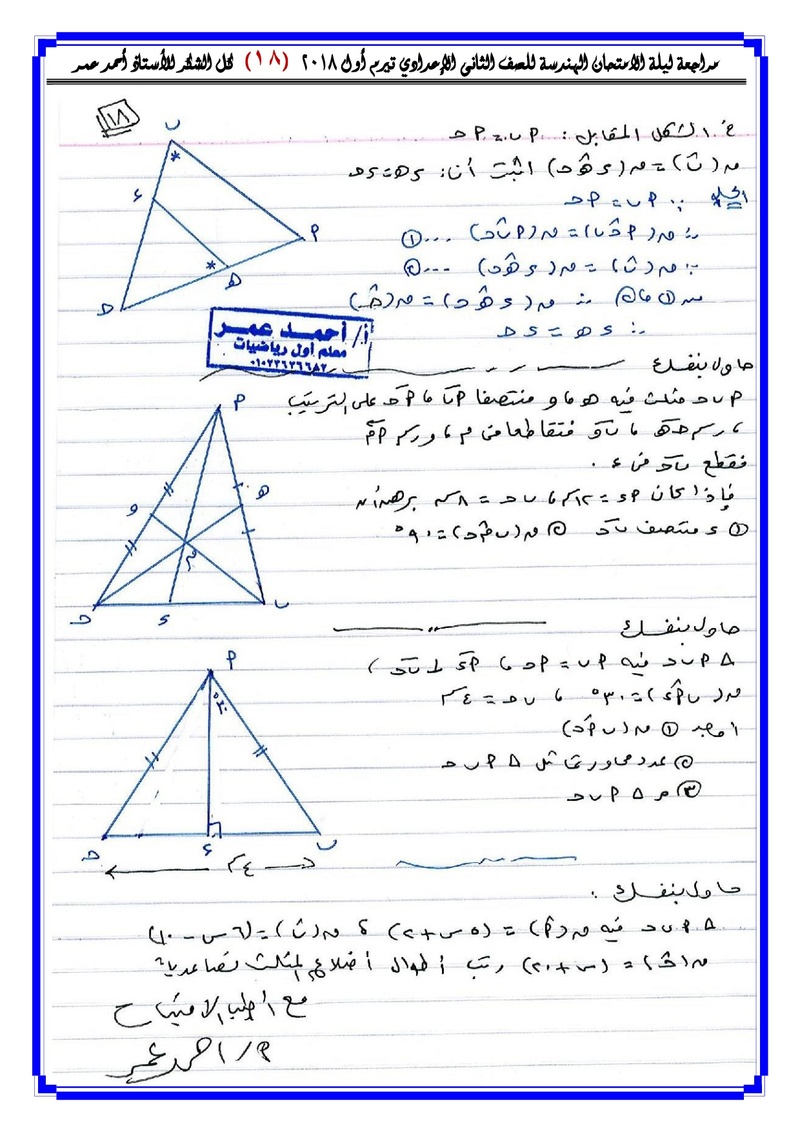 مراجعة ليلة الامتحان الهندسة للصف الثاني الإعدادي تيرم أول ٢٠١٨ (١٨) كل الشكر للأستاذ أحمد عمر
١٨
٤. الشكل المقابل: أب = أحـ
ق(بَ) = ق(ءهـَحـ) اثبت أن: ءهـ = ءحـ
الحل ∵ أب = أحـ
∴ ق(أحـَب) = ق(أبَحـ) ...①
∵ ق(بَ) = ق(ءهـَحـ) ...②
من ① ، ② ∴ ق(ءهـَحـ) = ق(حـَ)
∴ ءهـ = ءحـ
أ/ أحمد عمر
معلم أول رياضيات
٠١٠٢٣٦٣٦٦٨٢
حاول بنفسك
أبحـ مثلث فيه هـ ، و منتصفا أب ، أحـ على الترتيب
، رسم حـهـ ، بو فتقاطعا في م ، ورسم أم
فقطع بحـ في ء .
فإذا كان أء = ١٢سم ، بحـ = ٨سم برهن أن
① ء منتصف بحـ ② ق(بمَحـ) = ٩٠°
حاول بنفسك
△ أبحـ فيه أب = أحـ ، أء ⊥ بحـ ،
ق(بأَء) = ٣٠° ، بحـ = ٤سم
أوجد ① ق(بأَحـ)
② عدد محاور تماثل △ أبحـ
③ م △ أبحـ
حاول بنفسك .
△ أبحـ فيه ق(أَ) = (٥س + ٢) ، ق(بَ) = (٦س - ١٠)
ق(حـَ) = (س + ٢٠) رتب أطوال أضلاع المثلث تصاعدياً
مع أطيب الأمنيات
أ/ احمد عمر
ب
ء
أ
هـ
حـ
أ
و
هـ
م
حـ
ء
ب
أ
٣٠°
حـ
ء
ب
٤سم